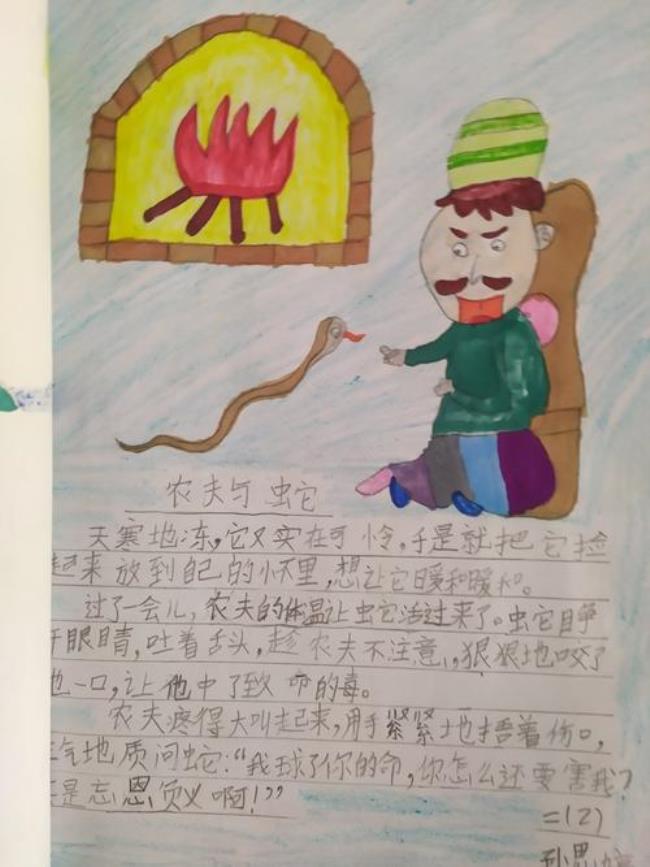 农夫与蛇
天寒地冻，它又实在可怜，于是就把它捡
起来放到自己的怀里，想让它暖和暖和。
过了一会儿，农夫的体温让蛇活过来了。蛇睁
开眼睛，吐着舌头，趁农夫不注意，狠狠地咬了
他一口，让他中了致命的毒。
农夫疼得大叫起来，用手紧紧地捂着伤口，
气地质问蛇：“我救了你的命，你怎么还要害我？
是忘恩负义啊！”
二(2)
孙思